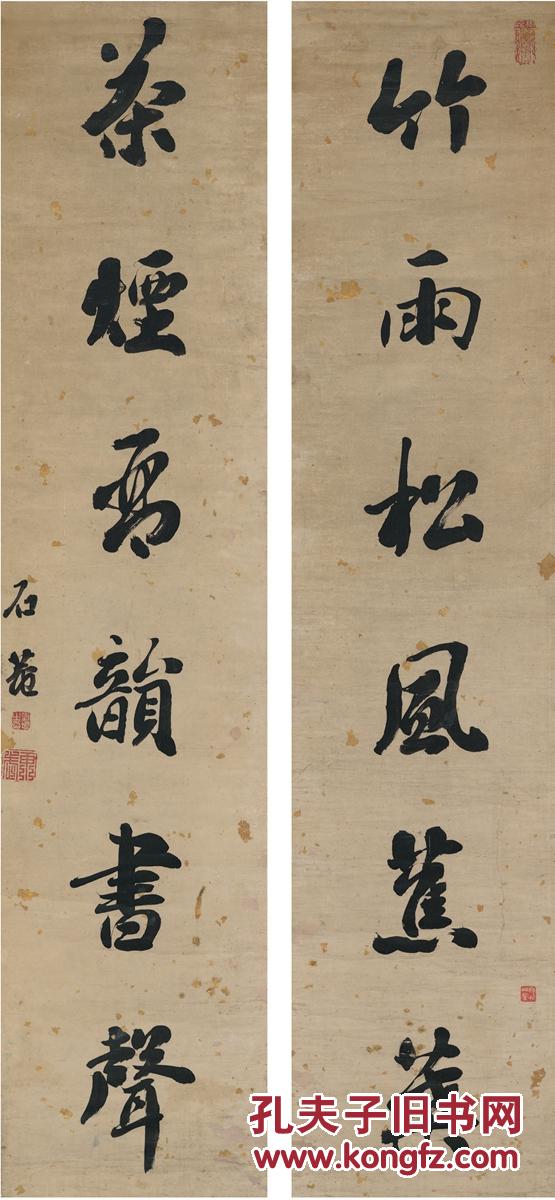 竹雨松風蕉葉
茶煙琴韻書聲
石菴
孔夫子旧书网
www.kongfz.com